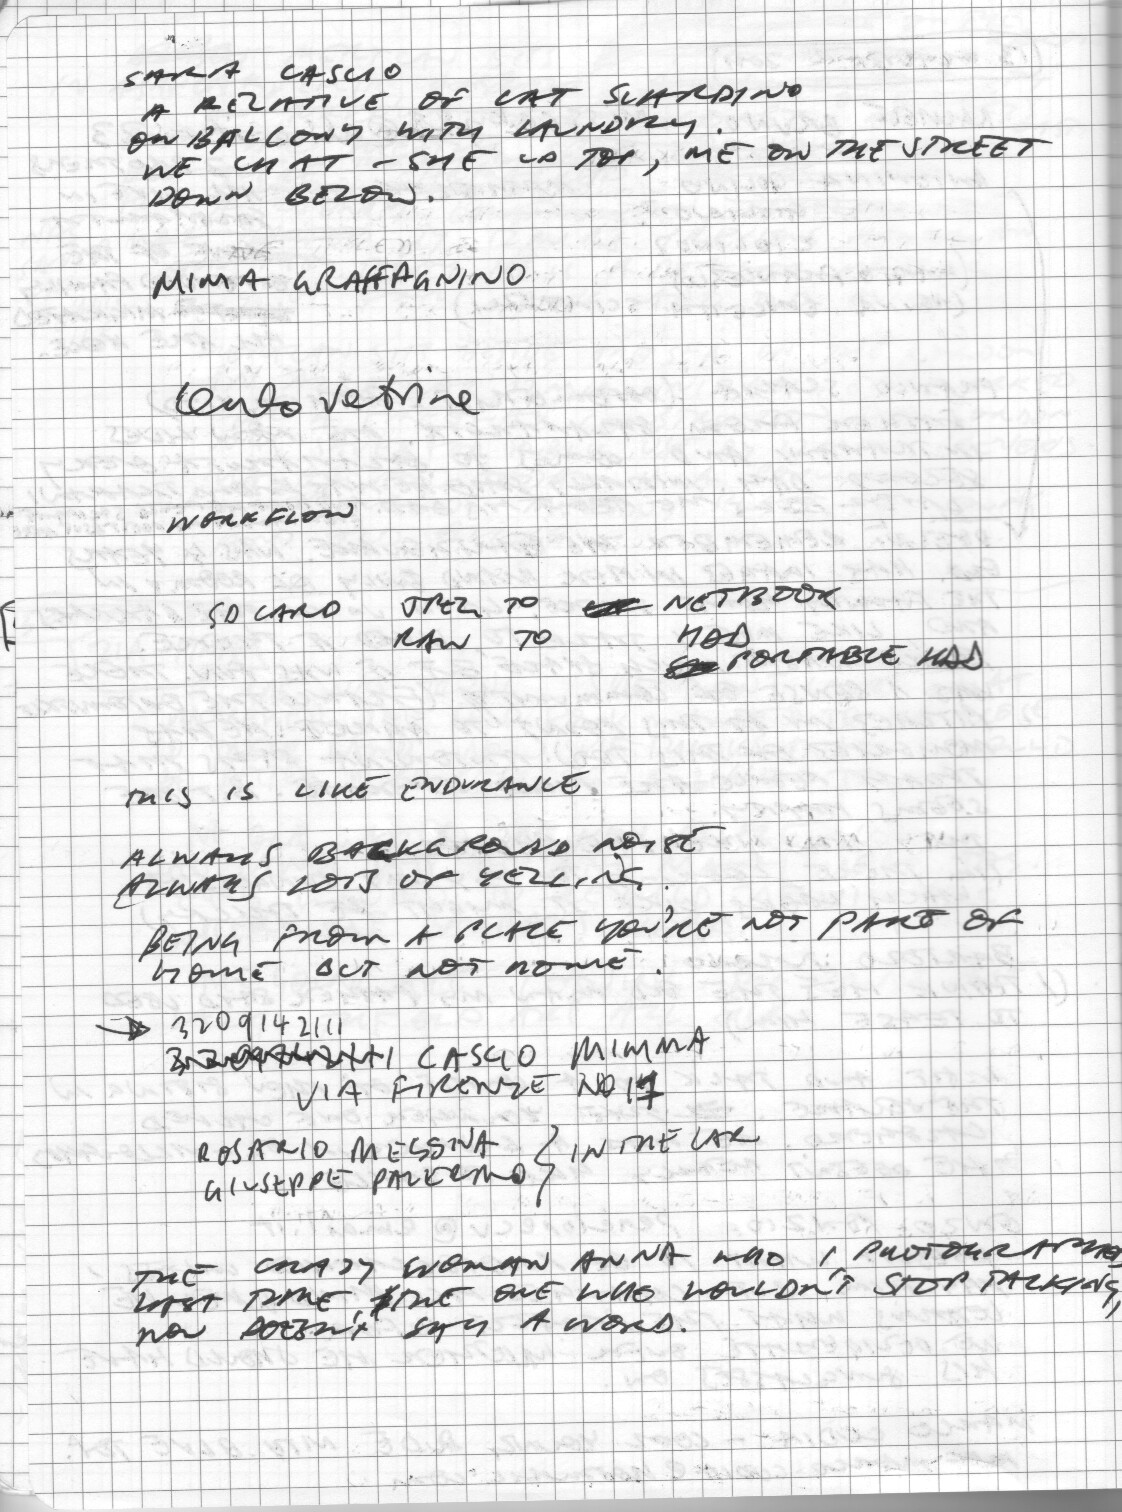 SARA CASCIO
A RELATIVE OF CAT SCARDINO
ON BALCONY WITH LAUNDRY.
WE CHAT - SHE UP TOP, ME ON THE STREET
DOWN BELOW.
MIMA GRAFFAGNINO
Cento Vetrine
WORKFLOW
SD CARD JPEG TO NETBOOK
RAW TO HDD
PORTABLE HDD
THIS IS LIKE ENDURANCE.
ALWAYS BACKGROUND NOISE
ALWAYS LOTS OF YELLING.
BEING FROM A PLACE YOU'RE NOT PART OF
HOME BUT NOT HOME.
→ 3209142111
CASCIO MIMMA
VIA FIRENZE NO 17
ROSARIO MESSINA } IN THE CAR
GIUSEPPE PALERMO
THE CRAZY WOMAN ANNA WHO I PHOTOGRAPHED
LAST TIME, THE ONE WHO WOULDN'T STOP TALKING,
NOW DOESN'T SAY A WORD.